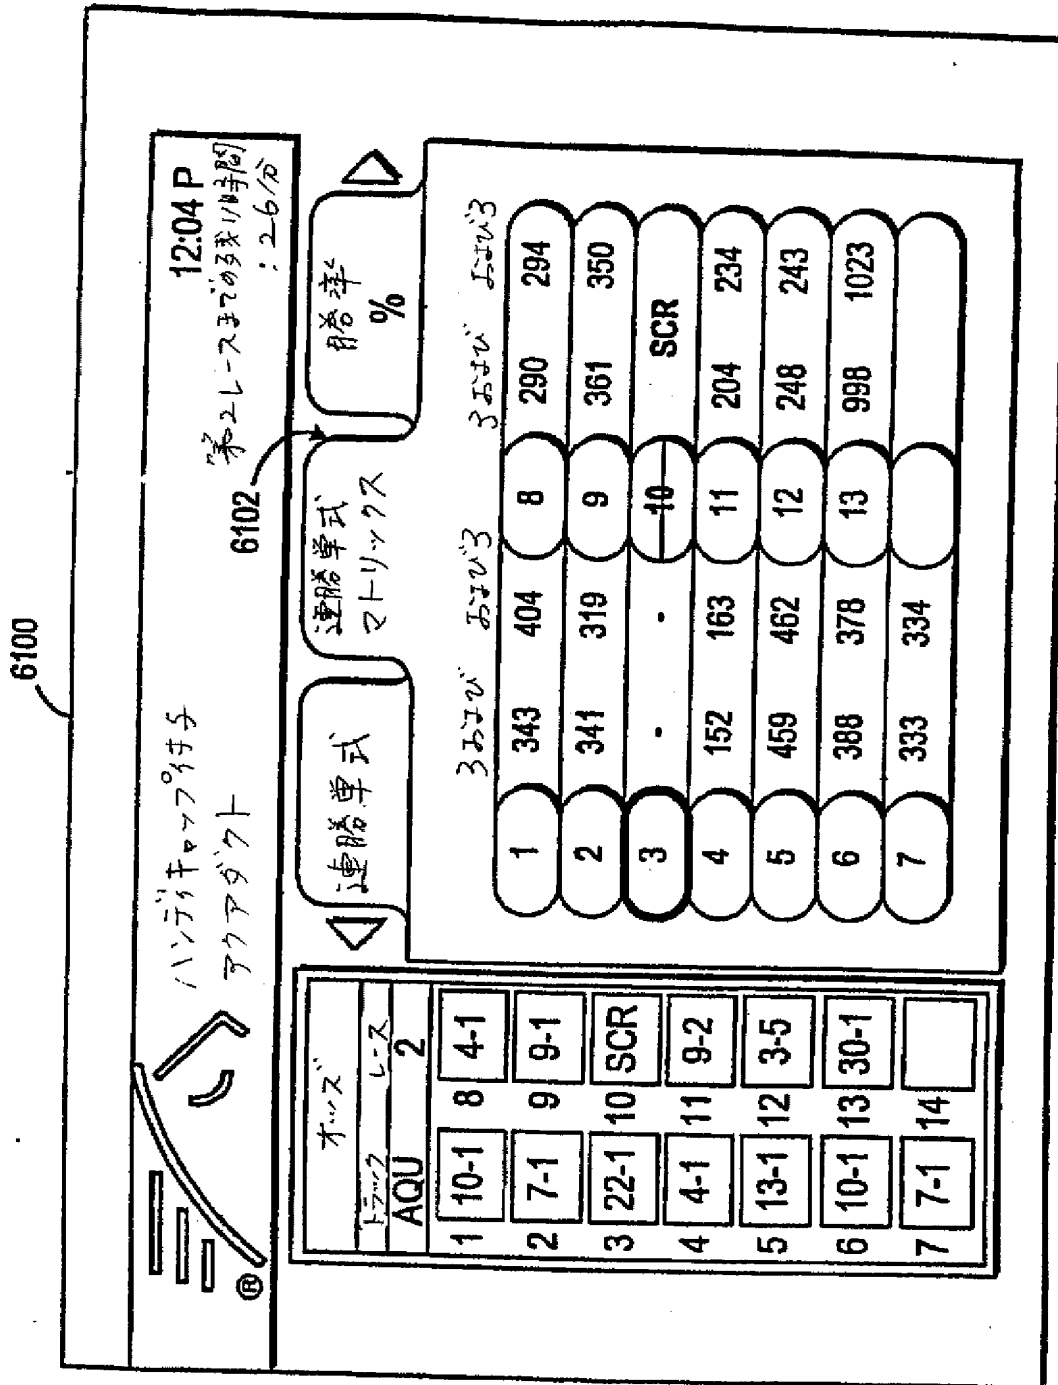 6100
12:04 P
ハンディキャップ付け
アクアダクト
第2レースまでの残り時間
:26分
6102
オッズ
トラック レース
AQU 2
1 10-1 8 4-1
2 7-1 9 9-1
3 22-1 10 SCR
4 4-1 11 9-2
5 13-1 12 3-5
6 10-1 13 30-1
7 7-1 14
®
連勝単式
連勝単式
マトリックス
勝率
%
3および および3 3および および3
1 343 404 8 290 294
2 341 319 9 361 350
3 · · 10 SCR
4 152 163 11 204 234
5 459 462 12 248 243
6 388 378 13 998 1023
7 333 334